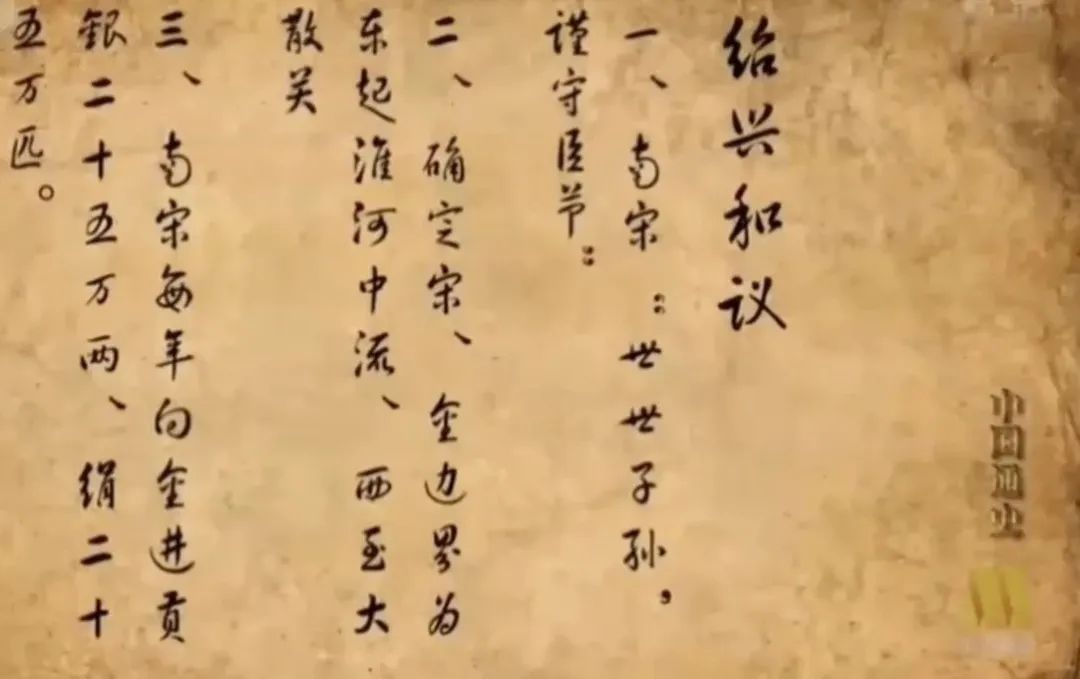 绍兴和议
一、南宋：世世子孙，
谨守臣节：
二、确定宋、金边界为
东起淮河中流、西至大
散关
三、南宋每年向金进贡
銀二十五万两、绢二十
五万匹。
中国通史